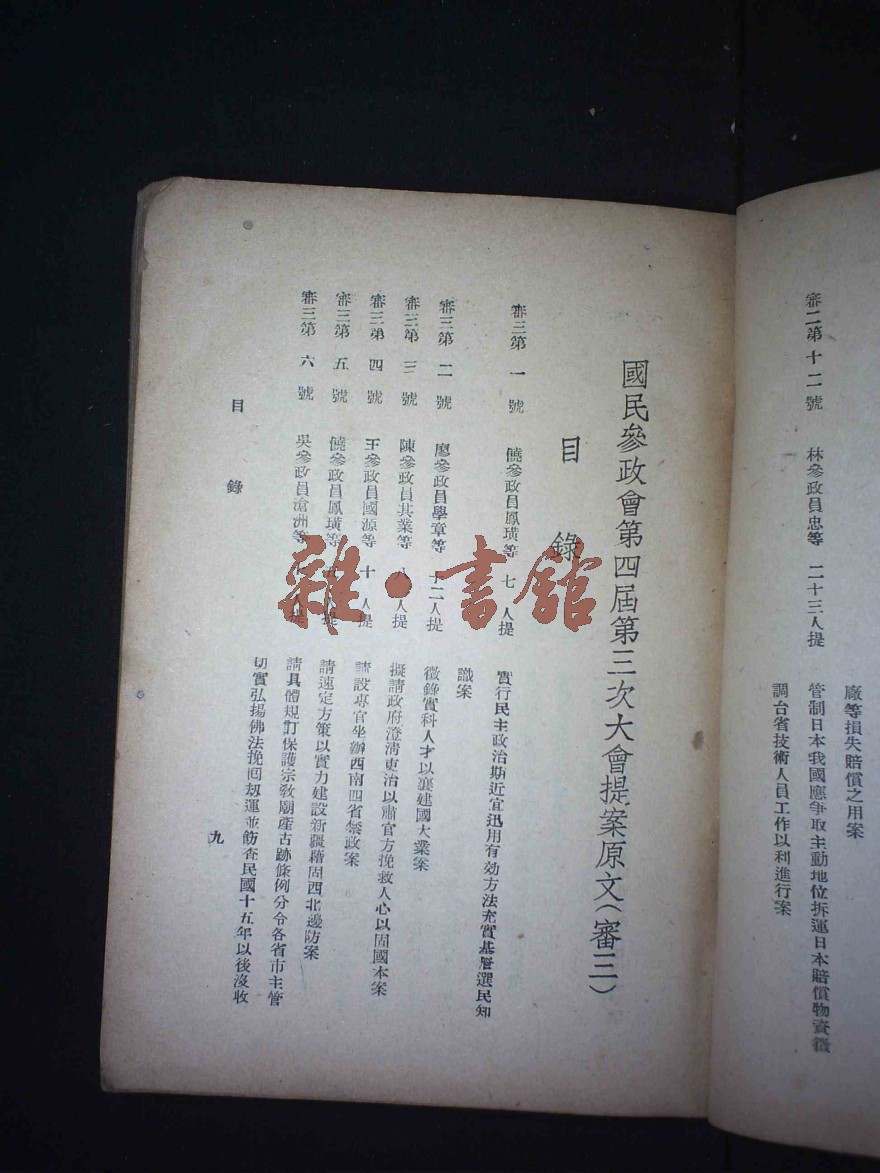 廠等損失賠償之用案
審二第十二號 林參政員忠等 二十三人提 管制日本我國應爭取主動地位拆運日本賠償物資徵
調台省技術人員工作以利進行案
國民參政會第四屆第三次大會提案原文(審三)
目錄
審三第一號 饒參政員鳳璜等 七人提 實行民主政治期近宜迅用有効方法充實基層選民知
識案
審三第二號 廖參政員學章等 十二人提 徵錄實科人才以襄建國大業案
審三第三號 陳參政員其業等 八人提 擬請政府澄清吏治以肅官方挽救人心以固國本案
審三第四號 王參政員國源等 十人提 請設專官坐辦西南四省禁政案
審三第五號 饒參政員鳳璜等 人提 請速定方策以實力建設新疆藉固西北邊防案
審三第六號 吳參政員滄洲等 人提 請具體規訂保護宗敎廟產古跡條例分令各省市主管
切實弘揚佛法挽囘刼運並飭查民國十五年以後沒收
目錄
九
雜·書館